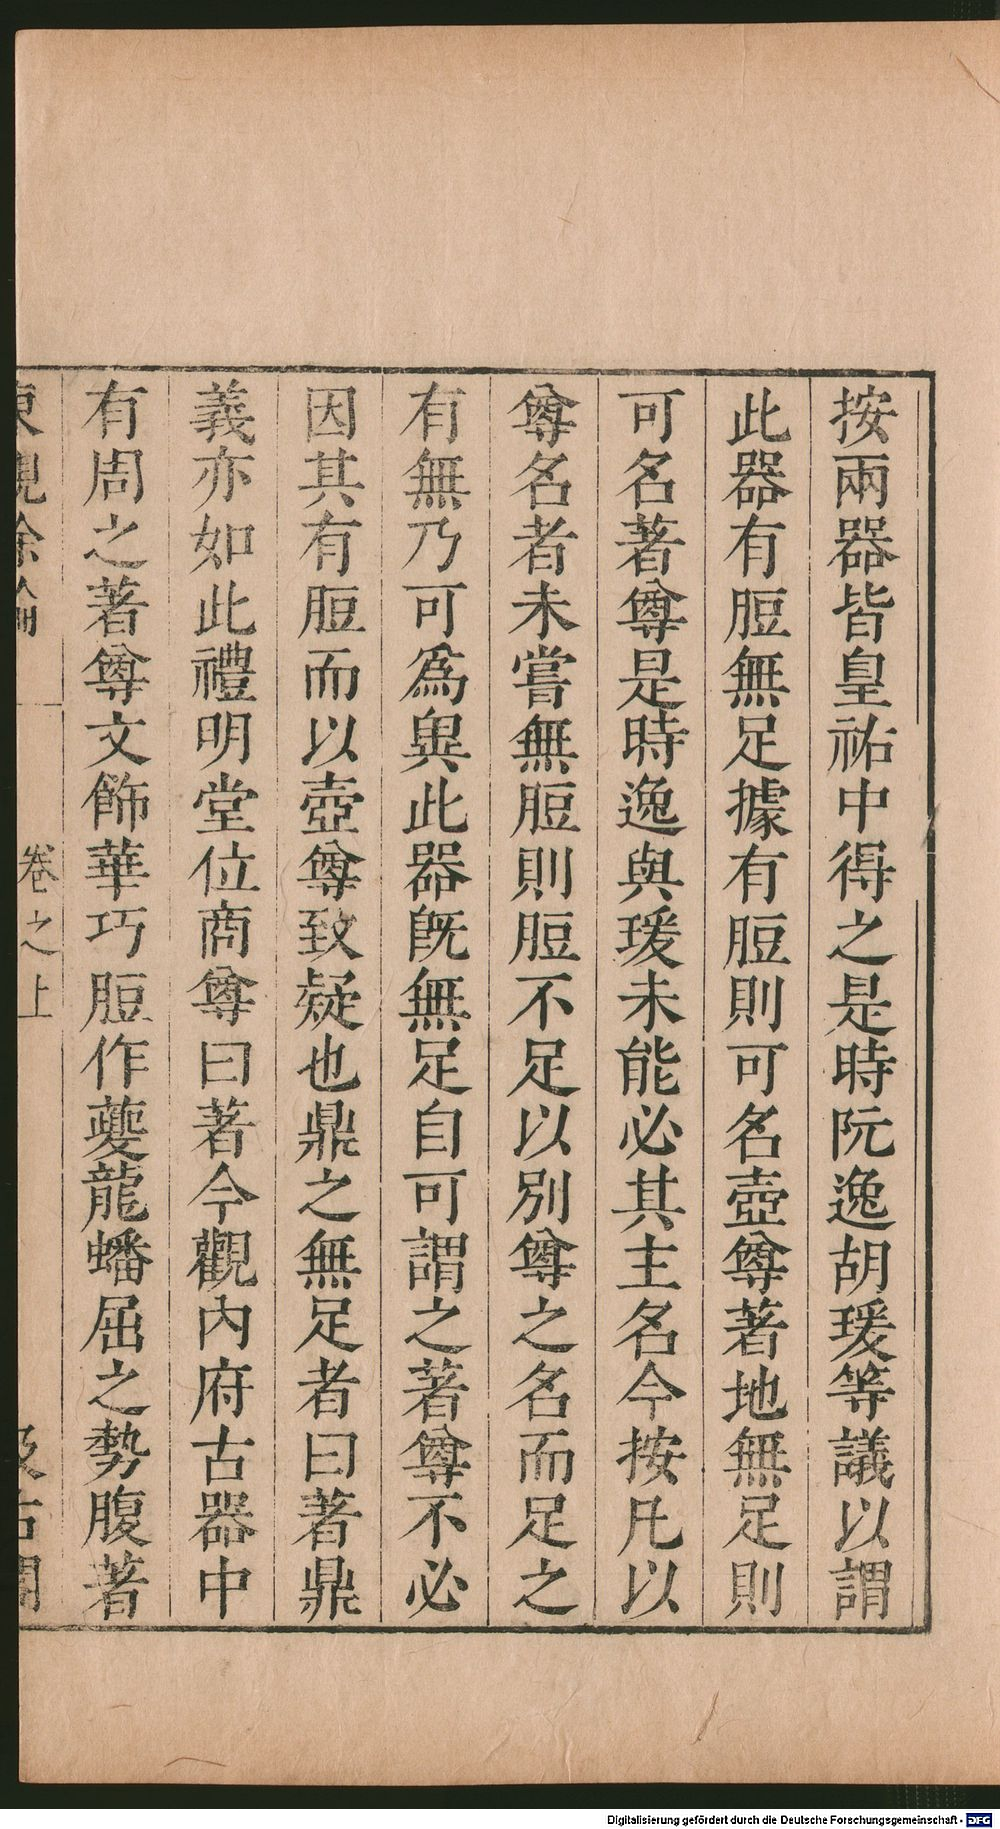 按兩器皆皇祐中得之是時阮逸胡瑗等議以謂
此器有脰無足據有脰則可名壺尊著地無足則
可名著尊是時逸與瑗未能必其主名今按凡以
尊名者未嘗無脰則脰不足以別尊之名而足之
有無乃可為異此器旣無足自可謂之著尊不必
因其有脰而以壺尊致疑也鼎之無足者曰著鼎
義亦如此禮明堂位商尊曰著今觀內府古器中
有周之著尊文飾華巧脰作夔龍蟠屈之勢腹著
東觀餘論 卷之上 汲古閣
Digitalisierung gefördert durch die Deutsche Forschungsgemeinschaft - DFG